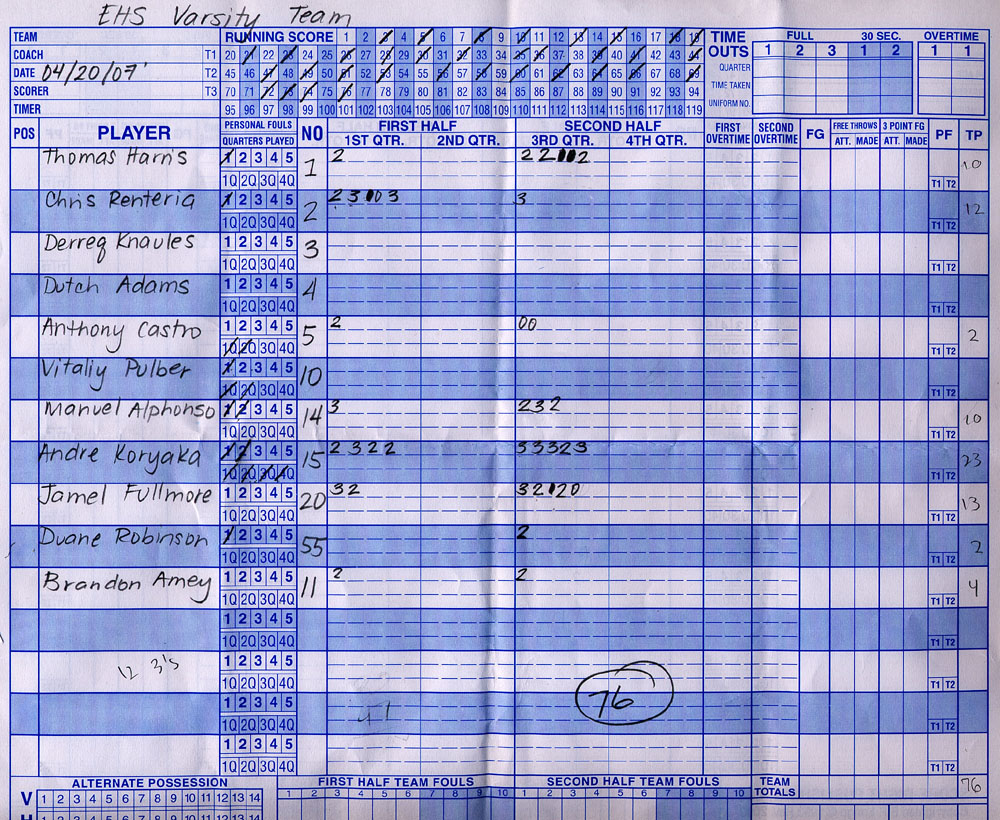 EHS Varsity Team
TEAM RUNNING SCORE 1 2 3 4 5 6 7 8 9 10 11 12 13 14 15 16 17 18 19 TIME OUTS FULL 30 SEC. OVERTIME
COACH T1 20 21 22 23 24 25 26 27 28 29 30 31 32 33 34 35 36 37 38 39 40 41 42 43 44 1 2 3 1 2 1 1
DATE 04/20/07 T2 45 46 47 48 49 50 51 52 53 54 55 56 57 58 59 60 61 62 63 64 65 66 67 68 69 QUARTER
SCORER T3 70 71 72 73 74 75 76 77 78 79 80 81 82 83 84 85 86 87 88 89 90 91 92 93 94 TIME TAKEN
TIMER 95 96 97 98 99 100 101 102 103 104 105 106 107 108 109 110 111 112 113 114 115 116 117 118 119 UNIFORM NO.
POS PLAYER PERSONAL FOULS QUARTERS PLAYED NO FIRST HALF 1ST QTR. 2ND QTR. SECOND HALF 3RD QTR. 4TH QTR. FIRST OVERTIME SECOND OVERTIME FG FREE THROWS ATT. MADE 3 POINT FG ATT. MADE PF TP
Thomas Harris 1 2 3 4 5 1 2 2 2 2 10
1Q 2Q 3Q 4Q T1 T2
Chris Renteria 1 2 3 4 5 2 2 3 0 3 3 12
1Q 2Q 3Q 4Q T1 T2
Derreq Knaules 1 2 3 4 5 3
1Q 2Q 3Q 4Q T1 T2
Dutch Adams 1 2 3 4 5 4
1Q 2Q 3Q 4Q T1 T2
Anthony Castro 1 2 3 4 5 5 2 00 2
1Q 2Q 3Q 4Q T1 T2
Vitaliy Pulber 1 2 3 4 5 10
1Q 2Q 3Q 4Q T1 T2
Manuel Alphonso 1 2 3 4 5 14 3 232 10
1Q 2Q 3Q 4Q T1 T2
Andre Koryaka 1 2 3 4 5 15 2 3 2 2 33323 23
1Q 2Q 3Q 4Q T1 T2
Jamel Fullmore 1 2 3 4 5 20 3 2 32 20 13
1Q 2Q 3Q 4Q T1 T2
Duane Robinson 1 2 3 4 5 55 2 2
1Q 2Q 3Q 4Q T1 T2
Brandon Amey 1 2 3 4 5 11 2 2 4
1Q 2Q 3Q 4Q T1 T2
1 2 3 4 5
1Q 2Q 3Q 4Q T1 T2
12 3's 1 2 3 4 5
1Q 2Q 3Q 4Q T1 T2
1 2 3 4 5 76
1Q 2Q 3Q 4Q 41 T1 T2
1 2 3 4 5
1Q 2Q 3Q 4Q T1 T2
ALTERNATE POSSESSION FIRST HALF TEAM FOULS SECOND HALF TEAM FOULS TEAM TOTALS 76
V 1 2 3 4 5 6 7 8 9 10 11 12 13 14 1 2 3 4 5 6 7 8 9 10 1 2 3 4 5 6 7 8 9 10